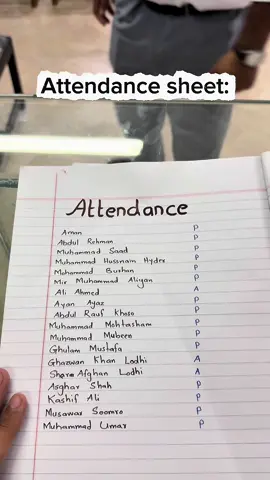 Attendance sheet:
Attendance
Aman P
Abdul Rehman P
Muhammad Saad P
Muhammad Hussnain Hyder P
Mohammad Burhan P
Mir Muhammad Aliyan P
Ali Ahmed A
Ayan Ayaz P
Abdul Rauf Khoso P
Muhammad Mohtasham P
Muhammad Mubeen P
Ghulam Mustafa P
Ghazwan Khan Lodhi A
Share Afghan Lodhi A
Asghar Shah P
Kashif Ali P
Musawar Soomro P
Muhammad Umar P